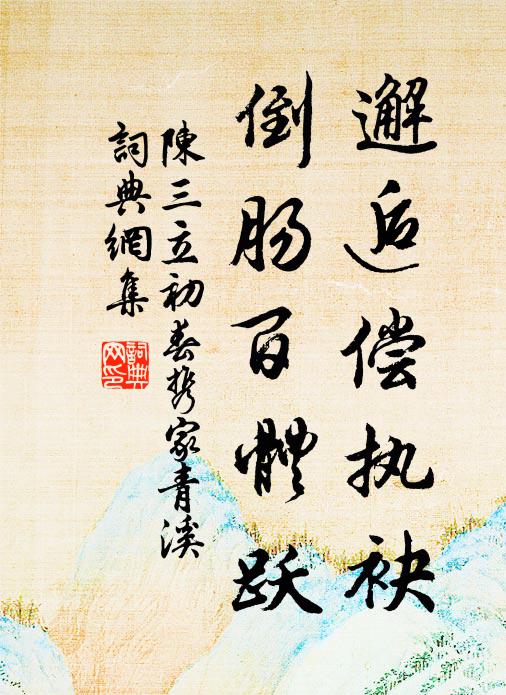 邂逅偿执袂
倒肠百体跃
陳三立初春携家青溪
詞典網集
詞典网印